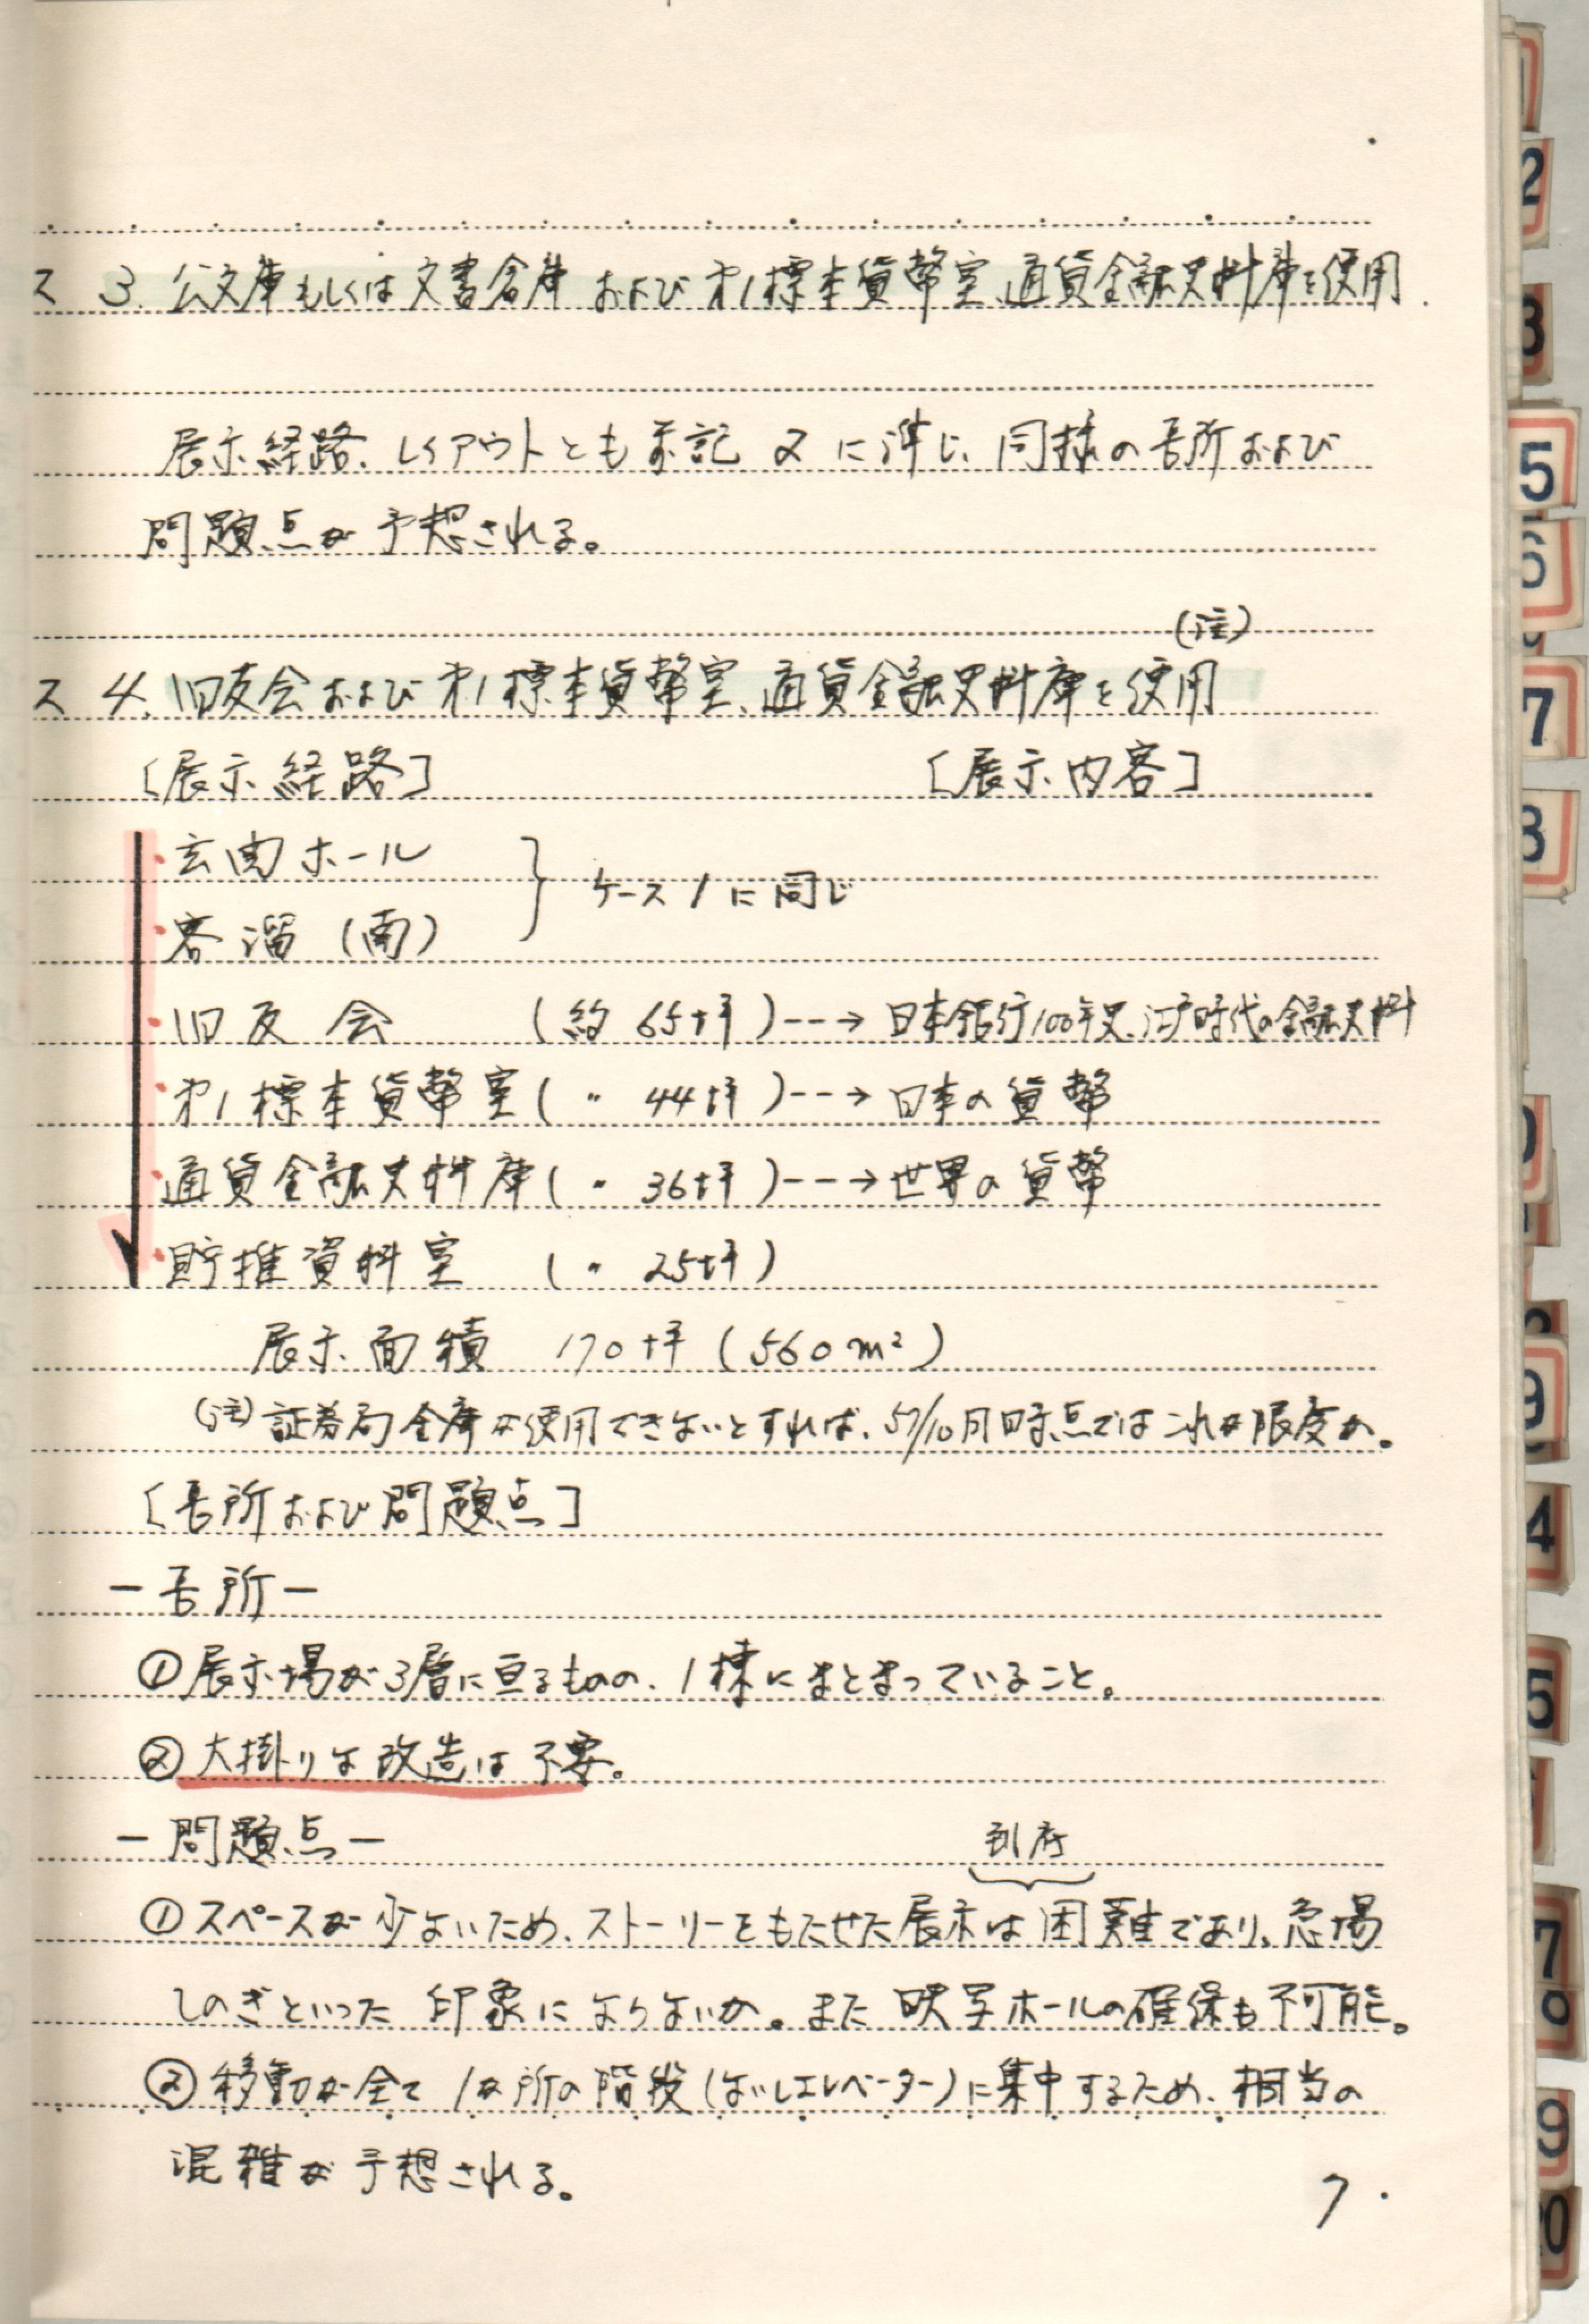 ス 3. 公文庫もしくは文書倉庫および才1標本貨幣室、通貨金融史料庫を使用.
展示経路、レイアウトとも前記 2 に準じ、同様の長所および
問題点が予想される。
(注)
ス 4. 旧友会および才1標本貨幣室、通貨金融史料庫を使用
[展示経路] [展示内容]
・玄関ホール
ケース1に同じ
・客溜(南)
・旧友会 (約 65坪)--→ 日本銀行100年史、江戸時代の金融史料
・才1標本貨幣室(〃 44坪)--→ 日本の貨幣
・通貨金融史料庫(〃 36坪)--→ 世界の貨幣
・貯推資料室 (〃 25坪)
展示面積 170坪(560m²)
(注)証券局金庫が使用できないとすれば、57/10月時点ではこれが限度か。
[長所および問題点]
-長所-
①展示場が3層に亘るものの、1棟にまとまっていること。
②大掛りな改造は不要。
-問題点-
到底
①スペースが少ないため、ストーリーをもたせた展示は困難であり、急場
しのぎといった印象にならないか。また映写ホールの確保も不可能。
②移動が全て1か所の階段(ないしエレベーター)に集中するため、相当の
混雑が予想される。
7.
2
3
5
6
7
8
9
4
5
7
8
9
10